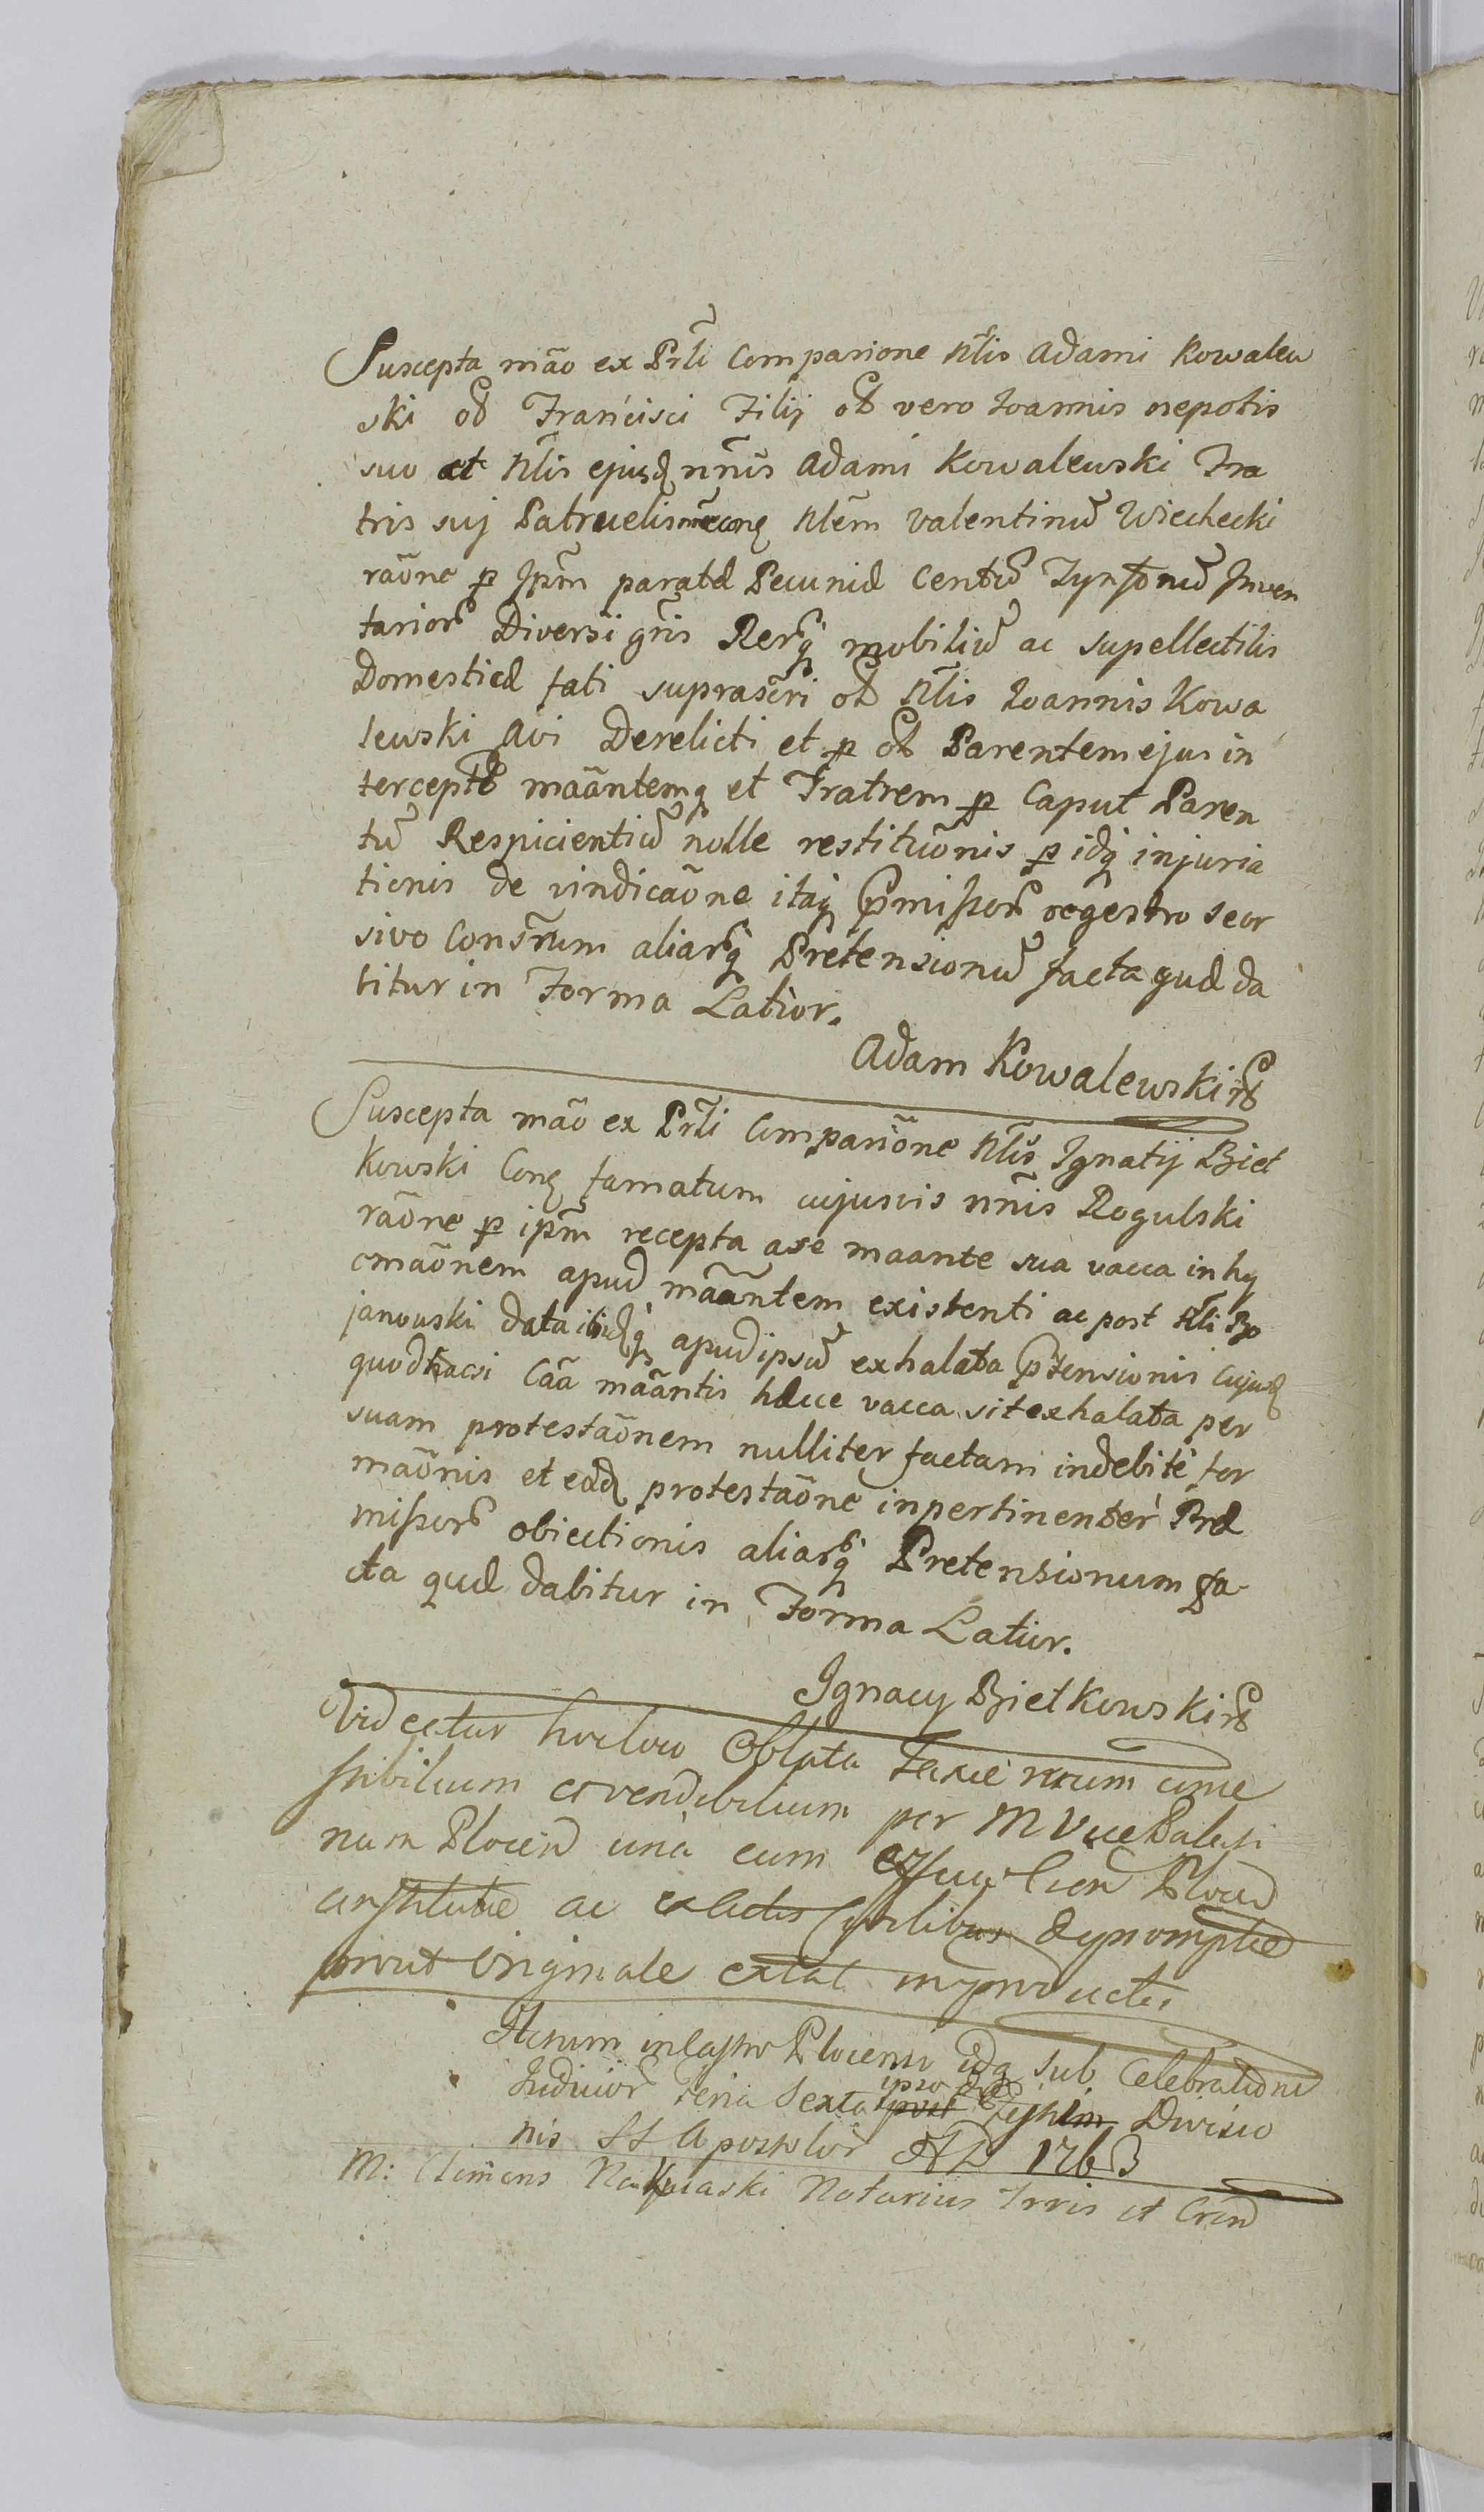 Suscepta mão ex Prli Comparione Nlis Adami Kowalew
ski oƀ Francisci Filij oƀ vero Joannis nepotis
suo et Nlis ejusdꝫ nñis Adami Kowalewski Fra
tris suj Patruelis nõe conꝫ Nlem Valentinũ Wiechecki
raõne ꝑ Jpm̃ paratæ Pecuniæ Centũ Tynfonũ Inven
tarior̃ Diversi gñis Rerq̃ mobiliũ ac supellectilis
Domesticæ fati suprascri oƀ Nlis Joannis Kowa
lewski Avi Derelicti et ꝑ oƀ Parentem ejus in
tercepti maãntemq et Fratrem ꝑ Caput Paren
tũ Respicientiũ nolle restituõnis ꝑ idq injuria
tionis de vindicaõne itaq p̃missor̃ regestro seor
sivo Consr̃um aliarq̃ Pretensionũ facta quæ da
bitur in Forma Latior.
Adam Kowalewski mƥ
Suscepta mão ex Prli Compariõne Nlis Ignatij Biet
kowski Conꝫ famatum cujusvis nñis Rogulski
raõne ꝑ ipm̃ recepta a se maante sua vacca in hy
emaõnem apud maãntem existenti ac post Nli Bo
janowski data ibidꝫq apud ipsũ exhalata p̃tensionis Cujusdꝫ
quod hacsi Caã maãntis hæcce vacca sit exhalata per
suam protestaõnem nulliter factam indebitè for
maõnis et eadꝫ protestaõne inpertinentèr Præ
missor̃ obiectionis aliarq̃ Pretensionum fa
cta quæ dabitur in Forma Latior.
Ignacy Bietkowski mƥ
Videatur hocloco Oblata Taxae rerum come
stibilium et vendibilium per M Vice Palati
num Plocen̄ unà cum Officio Cien̄ Plocen̄
constitutae ac exlectis
prout Originale extat in productis
Actum in Castro Plocensi idq sub Celebratione
Judicior̃ Feria Sexta ~~post~~ ipso die Festi Divisio
nis SS Apostolor̃ AD 1763
M: Clemens Nakwaski Notarius Trris et Cren̄